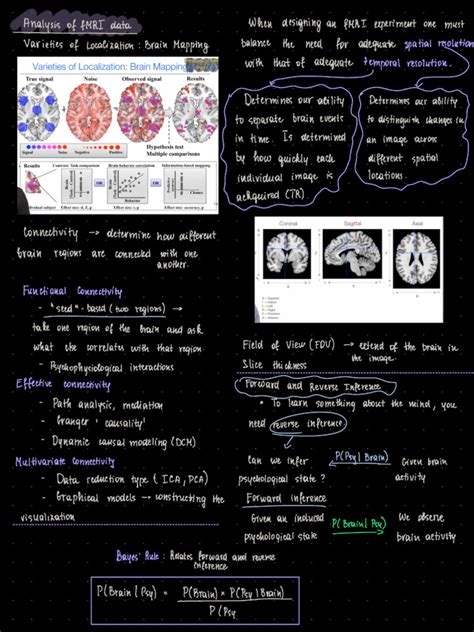 Analysis of fMRI data
Varieties of Localization : Brain Mapping
Varieties of Localization: Brain Mapping
True signal
Noise
Observed signal
Results
Signal
Noise
Positive
Negative
Hypothesis test
Multiple comparisons
Results
Contrast: Task comparison
Brain-behavior correlation
Information-based mapping
OR
OR
Behavior
Individual subject
Connectivity → determine how different
brain regions are connected with one
another.
Functional Connectivity
- "seed"-based (two regions) →
take one region of the brain and ask
what else correlates with that region.
- Psychophysiological interactions
Effective connectivity
- Path analysis, mediation
- Granger 'causality'
- Dynamic causal modeling (DCM)
Multivariate Connectivity
- Data reduction type (ICA, PCA)
- Graphical models → constructing the
visualization
When designing an fMRI experiment one must
balance the need for adequate spatial resolution
with that of adequate temporal resolution.
Determines our ability
to separate brain events
in time. Is determined
by how quickly each
individual image is
acquired (TR)
Determines our ability
to distinguish changes in
an image across
different spatial
locations.
Coronal
Sagittal
Axial
Field of View (FOV) → extend of the brain in
the image.
Slice thickness
Forward and Reverse Inference
• To learn something about the mind, you
need reverse inference
Can we infer
psychological state?
P(Psy | Brain)
Given brain
activity
Forward inference
Given an induced
psychological state
P(Brain | Psy)
We observe
brain activity
Bayes' Rule : Relates forward and reverse
inference
P(Brain | Psy) = P(Brain) × P(Psy | Brain)
P(Psy